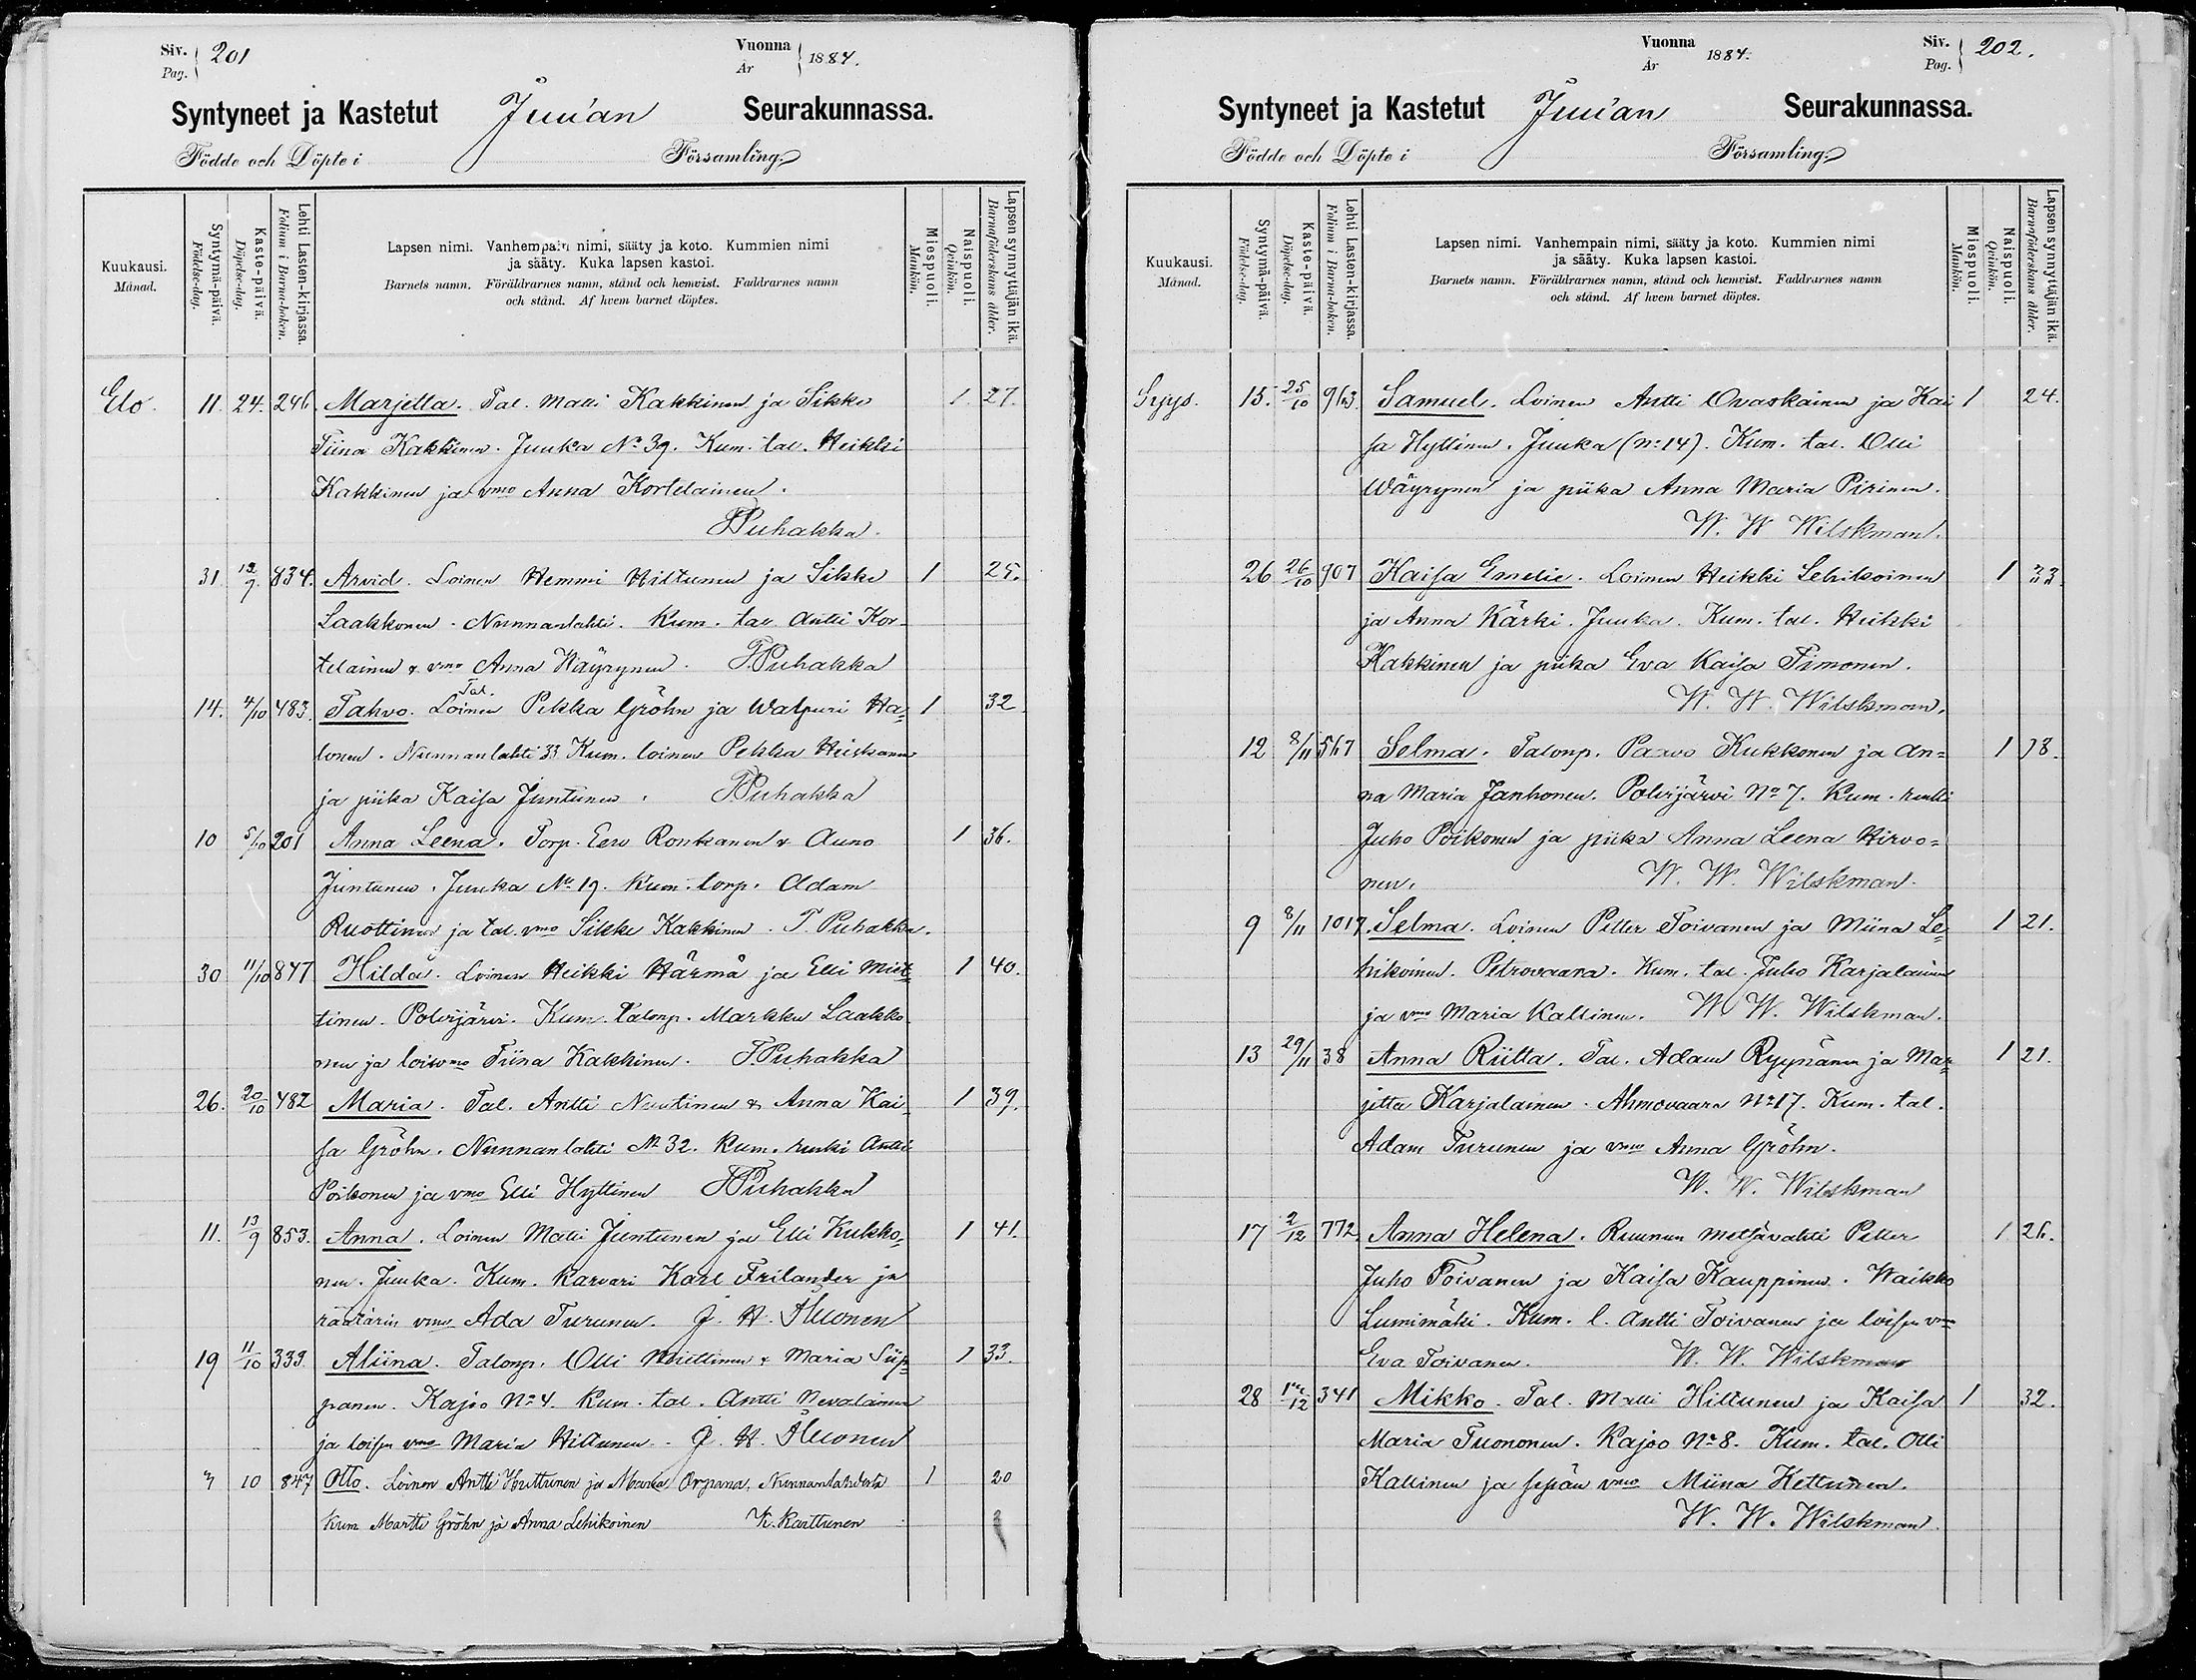 Siv. 201
Pag.
Vuonna 1884.
År
Syntyneet ja Kastetut Juuan Seurakunnassa.
Födde och Döpte i Församling.
Kuukausi.
Månad.
Syntymä-päivä.
Födelse-dag.
Kaste-päivä.
Döpelse-dag.
Lehti Lasten-kirjassa.
Folium i Barna-boken.
Lapsen nimi. Vanhempain nimi, sääty ja koto. Kummien nimi
ja sääty. Kuka lapsen kastoi.
Barnets namn. Föräldrarnes namn, stånd och hemvist. Faddrarnes namn
och stånd. Af hvem barnet döptes.
Miespuoli.
Mankön.
Naispuoli.
Qvinkön.
Lapsen synnyttäjän ikä.
Barnaföderskans ålder.
Elo. 11. 24. 246. Marjetta. Tal. Matti Kakkinen ja Sikke 1. 27.
Tiina Kakkinen. Juuka No 39. Kum. tal. Heikki
Kakkinen ja vmo Anna Kortelainen.
Puhakka.
31 12/9. 834. Arvid. Loinen Hemmi Hiltunen ja Sikke 1 25.
Laakkonen. Nunnanlahti. Kum. tal Antti Kor-
telainen & vmo Anna Wäyrynen. T. Puhakka
Tal.
14. 4/10 483. Tahvo. Loinen Pekka Gröhn ja Walpuri Ha- 1 32
lonen. Nunnanlahti 33 Kum. loinen Pekka
ja piika Kaisa Juntunen. Puhakka
10 5/10 201 Anna Leena. Torp. Eero Ronkanen & Auno 1 36.
Juntunen. Juuka No 19. Kum. torp. Adam
Ruottinen ja tal. vmo Sikke Kakkinen. T. Puhakka.
30 11/10 847 Hilda. Loinen Heikki Härmä ja Elli Must- 1 40.
tinen. Polvijärvi. Kum. talonp. Markku Laakko-
nen ja lois vmo Tiina Kakkinen. T. Puhakka
26. 20/10 482 Maria. Tal. Antti Nuutinen & Anna Kai- 1 39.
sa Gröhn. Nunnanlahti No 32. Kum. renki Antti
Poikonen ja vmo Elli Hyttinen Puhakka
11. 13/9 853. Anna. Loinen Matti Juntunen ja Elli Kukko- 1 41.
nen. Juuka. Kum. Karvari Karl Frilander ja
räätärin vmo Ada Turunen. J. H. Aluonen
19 11/10 333. Aliina. Talonp. Olli & Maria Sip- 1 33.
panen. Kajoo No 4. Kum. tal. Antti Nevalainen
ja loisen vmo Maria Hiltunen. J. H. Aluonen
7 10 847 Otto. Loinen Antti Huttunen ja Maria Orpana, Nunnanlahdesta 1 20
Kum Martti Gröhn ja Anna Lehikoinen K. Karttunen
Vuonna 1884.
År
Siv. 202.
Pag.
Syntyneet ja Kastetut Juuan Seurakunnassa.
Födde och Döpte i Församling.
Kuukausi.
Månad.
Syntymä-päivä.
Födelse-dag.
Kaste-päivä.
Döpelse-dag.
Lehti Lasten-kirjassa.
Folium i Barna-boken.
Lapsen nimi. Vanhempain nimi, sääty ja koto. Kummien nimi
ja sääty. Kuka lapsen kastoi.
Barnets namn. Föräldrarnes namn, stånd och hemvist. Faddrarnes namn
och stånd. Af hvem barnet döptes.
Miespuoli.
Mankön.
Naispuoli.
Qvinkön.
Lapsen synnyttäjän ikä.
Barnaföderskans ålder.
Syys. 15. 25/10 963 Samuel. Loinen Antti Ovaskainen ja Kai 1 24.
sa Hyttinen. Juuka (No 14). Kum. tal. Olli
Wäyrynen ja piika Anna Maria Pirinen.
W. W Wilskman.
26 26/10 907 Kaisa Emelie. Loinen Heikki Lehikoinen 1 33.
ja Anna Kärki. Juuka. Kum. tal. Heikki
Kakkinen ja piika Eva Kaisa Timonen.
W. W. Wilskman.
12 8/11 567 Selma. Talonp. Paavo Kukkonen ja An= 1 38.
na Maria Janhonen. Polvijärvi No 7. Kum. renki
Juho Poikonen ja piika Anna Leena Hirvo=
nen. W. W. Wilskman.
9 8/11 1017. Selma. Loinen Petter Toivanen ja Miina Le- 1 21.
hikoinen. Petrovaara. Kum. tal. Juho Karjalainen
ja vmo Maria Kallinen. W. W. Wilskman.
13 29/11 38 Anna Riitta. Tal. Adam Ryynänen ja Mar- 1 21.
jitta Karjalainen. Ahmovaara No 17. Kum. tal.
Adam Turunen ja vmo Anna Gröhn.
W. W. Wilskman
17 2/12 772 Anna Helena. Ruunun metsävahti Petter 1 26.
Juho Toivanen ja Kaisa Kauppinen. Waikko
Lumimäki. Kum. l. Antti Toivanen ja loisen vmo
Eva Toivanen. W. W. Wilskman
28 /12 341 Mikko. Tal. Matti Hiltunen ja Kaisa 1 32.
Maria Tuononen. Kajoo No 8. Kum. tal. Olli
Kallinen ja sepän vmo Miina Kettunen.
W. W. Wilskman.